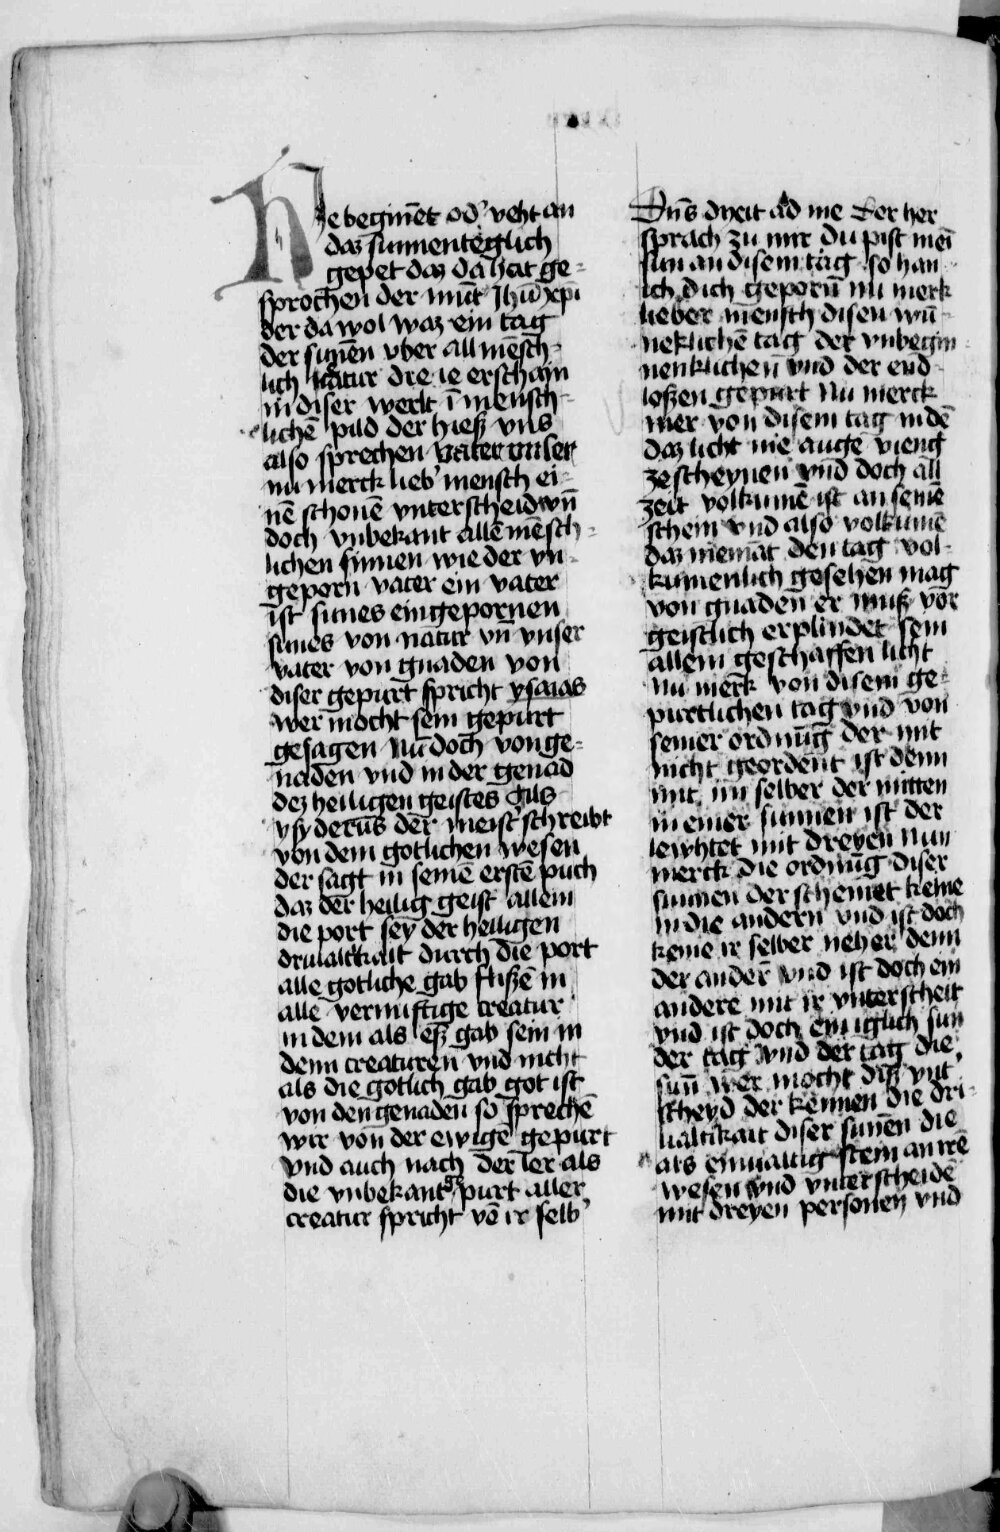 Hie begiñet od' veht an
daz sunnentëglich
gepet daz da hat ge-
sprochen der munt Jhū xpī
der da wol waz ein tag
der suñen vber all mēsch-
lich natur die ie erschain
in diser werlt ī mensch-
lichē pild der hieß vns
also sprechen vater vnser
nu merck lieb' mensch ei-
nē schonē vnterscheid vn̄
doch vnbekant allē mēsch-
lichen sinnen wie der vn-
geporn vater ein vater
ist sunes eingepornen
sunes von natur vn̄ vnser
vater von gnaden von
diser gepurt spricht ysaias
wer mocht sein gepurt
gesagen Nu doch von ge-
naden vnd in der genad
dez heiligen geistes als
ysyderus der meist' schreibt
von dem gotlichen wesen
der sagt in seinē erstē puch
daz der heilig geist allein
die port sey der heiligen
driualtikait durch die port
alle gotliche gab flißē in
alle vernuftige creatur
in dem als eß gab sein in
denn creaturen vnd nicht
als die gotlich gab got ist
von den genaden so sprechē
wir von der ewigē gepurt
vnd auch nach der ler als
die vnbekant purt aller
creatur spricht vō ir selb'
Dn̄s dixit ad me Der her
sprach zu mir du pist mei
sun an disem tag so han
ich dich geporn̄ nu merk
lieber mensch disen wū-
neklichē tag der vnbegin-
nenklichen vnd der end-
loßen gepurt Nu merck
mer von disem tag in dē
daz licht nie auge vieng
ze scheynen vnd doch all
zeit volkumē ist an seinē
schein vnd also volkumē
daz niemāt den tag vol-
kumenlich gesehen mag
von gnaden er muß vor
geistlich erplindet sein
allem geschaffen licht
Nu merk von disem ge-
purtlichen tag vnd von
seiner ordnūg der mit
nicht geordent ist denn
mit im selber der mitten
in einer sunnen ist der
lewhtet mit dreyen Nun
merck die ordnūg diser
sunnen der scheinet keine
in die andern vnd ist doch
keine ir selber neher denn
der ander vnd ist doch ein
andere mit ir vnterscheit
vnd ist doch ein iglich sun
der tag vnd der tag die
sun̄ wer mocht diß vnt
scheyd der kennen die dri-
ualtikait diser sunēn die
als einualtig stein an irē
wesen vnd vnterscheidē
mit dreyen personen vnd